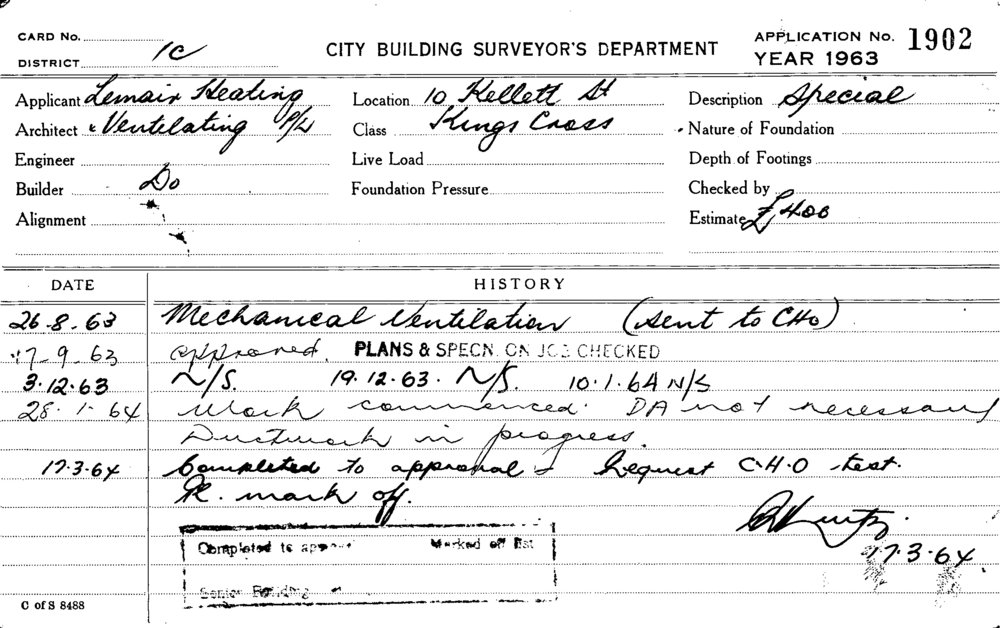 CARD No.
DISTRICT 1C
CITY BUILDING SURVEYOR'S DEPARTMENT
APPLICATION No. 1902
YEAR 1963
Applicant Lemair Heating
Architect & Ventilating P/L
Engineer
Builder Do
Alignment
Location 10 Kellett St
Class Kings Cross
Live Load
Foundation Pressure
Description Special
Nature of Foundation
Depth of Footings
Checked by
Estimate £400
DATE HISTORY
26-8-63 Mechanical Ventilation (sent to CHO)
17-9-63 approved. PLANS & SPECN. ON JOB CHECKED
3.12.63 N/S. 19.12.63. N/S. 10.1.64 N/S
28.1.64 Work commenced. DA not necessary
Ductwork in progress.
17.3.64 Completed to approval & request C.H.O test.
mark off.
17.3.64
Completed to Marked off list
Senior Building
C of S 8488